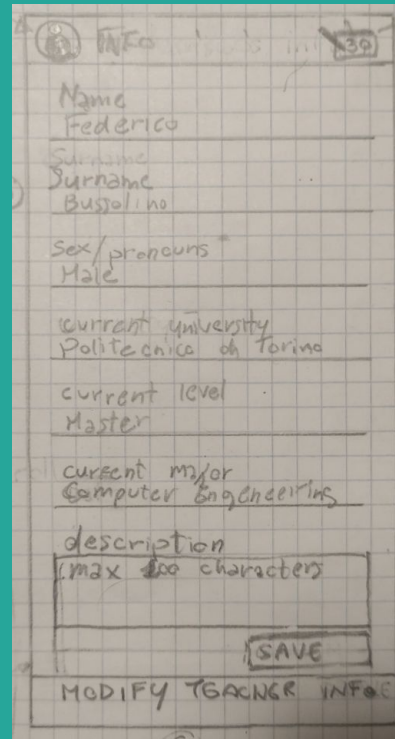 INFO
30
Name
Federico
Surname
Surname
Bussolino
Sex/pronouns
Male
current university
Politecnico di Torino
current level
Master
current major
Computer Engeneering
description
max 200 characters
SAVE
MODIFY TEACHER INFO